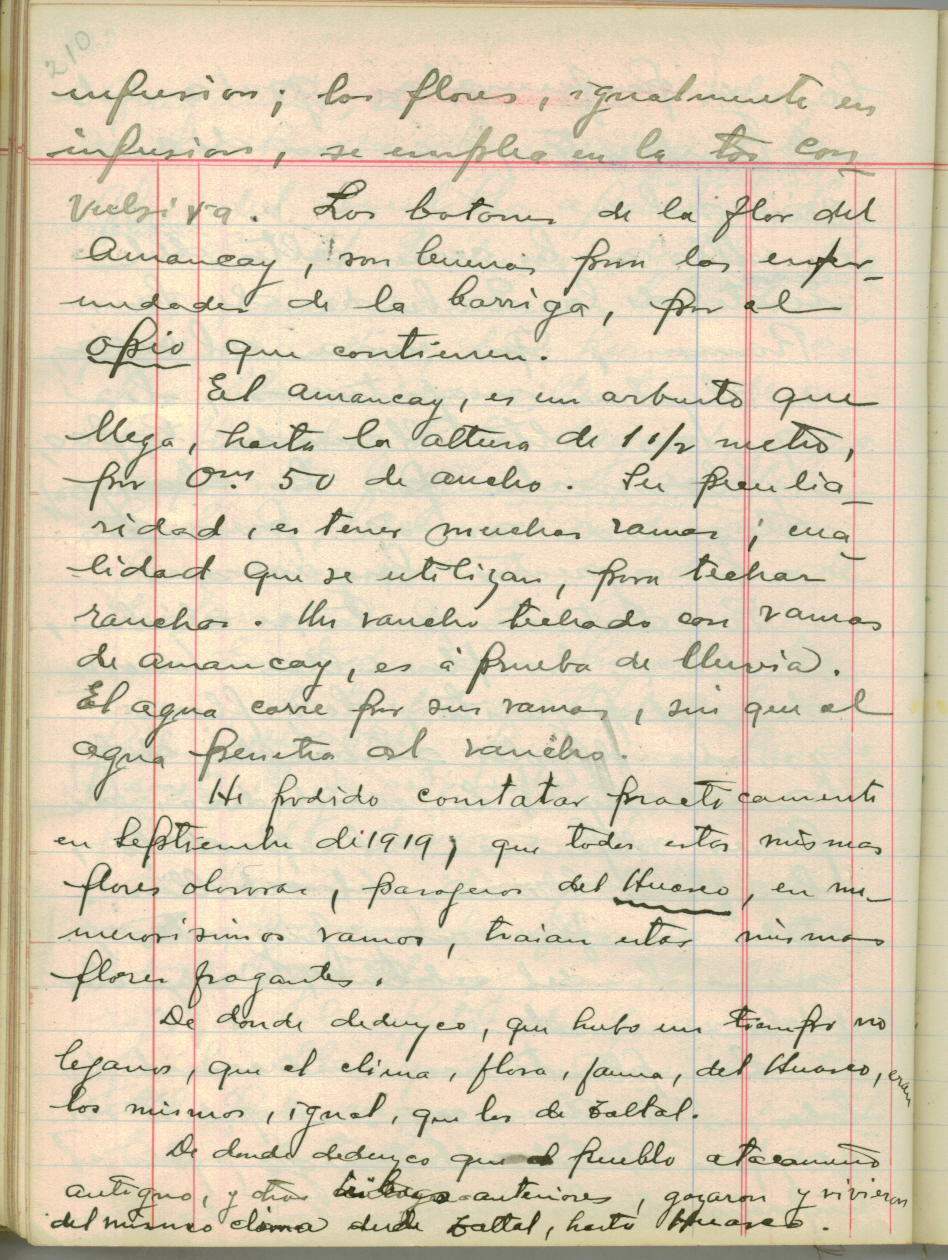 210
infusion; las flores, igualmente en
infusion, se emplea en la tos con
vulsiva. Los botones de la flor del
Amancay, son buenos para las enfer-
medades de la barriga, por el
opio que contienen.
El amancay, es un arbusto que
llega, hasta la altura de 1 1/2 metro,
por 0m 50 de ancho. Su peculia-
ridad, es tener muchas ramas; cua-
lidad que se utilizan, para techar
ranchos. Un rancho techado con ramas
de amancay, es á prueba de lluvia.
El agua corre por sus ramas, sin que el
agua penetra al rancho.
He podido constatar practicamente
en Septiembre de 1919, que todas estas mismas
flores olorosas, pasageros del Huasco, en nu-
merosisimos ramos, traian estas mismas
flores fragantes.
De donde deduzco, que hubo un tiempo no
lejanos, que el clima, flora, fauna, del Huasco, eran
los mismos, igual, que los de Taltal.
De donde deduzco que el pueblo atacameño
antiguo, y otras anteriores, gozaron y vivieron
del mismo clima desde Taltal, hasta Huasco.